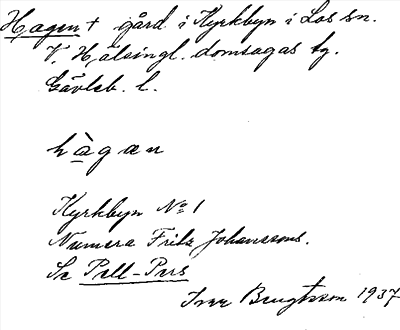 Hagen + gård i Kyrkbyn i Los sn.
V. Hälsingl. domsagas tg.
Gävleb. l.
hàgan
Kyrkbyn No 1
Numera Fritz Johanssons.
Se Pell-Pers
Ivar Bengtsson 1937